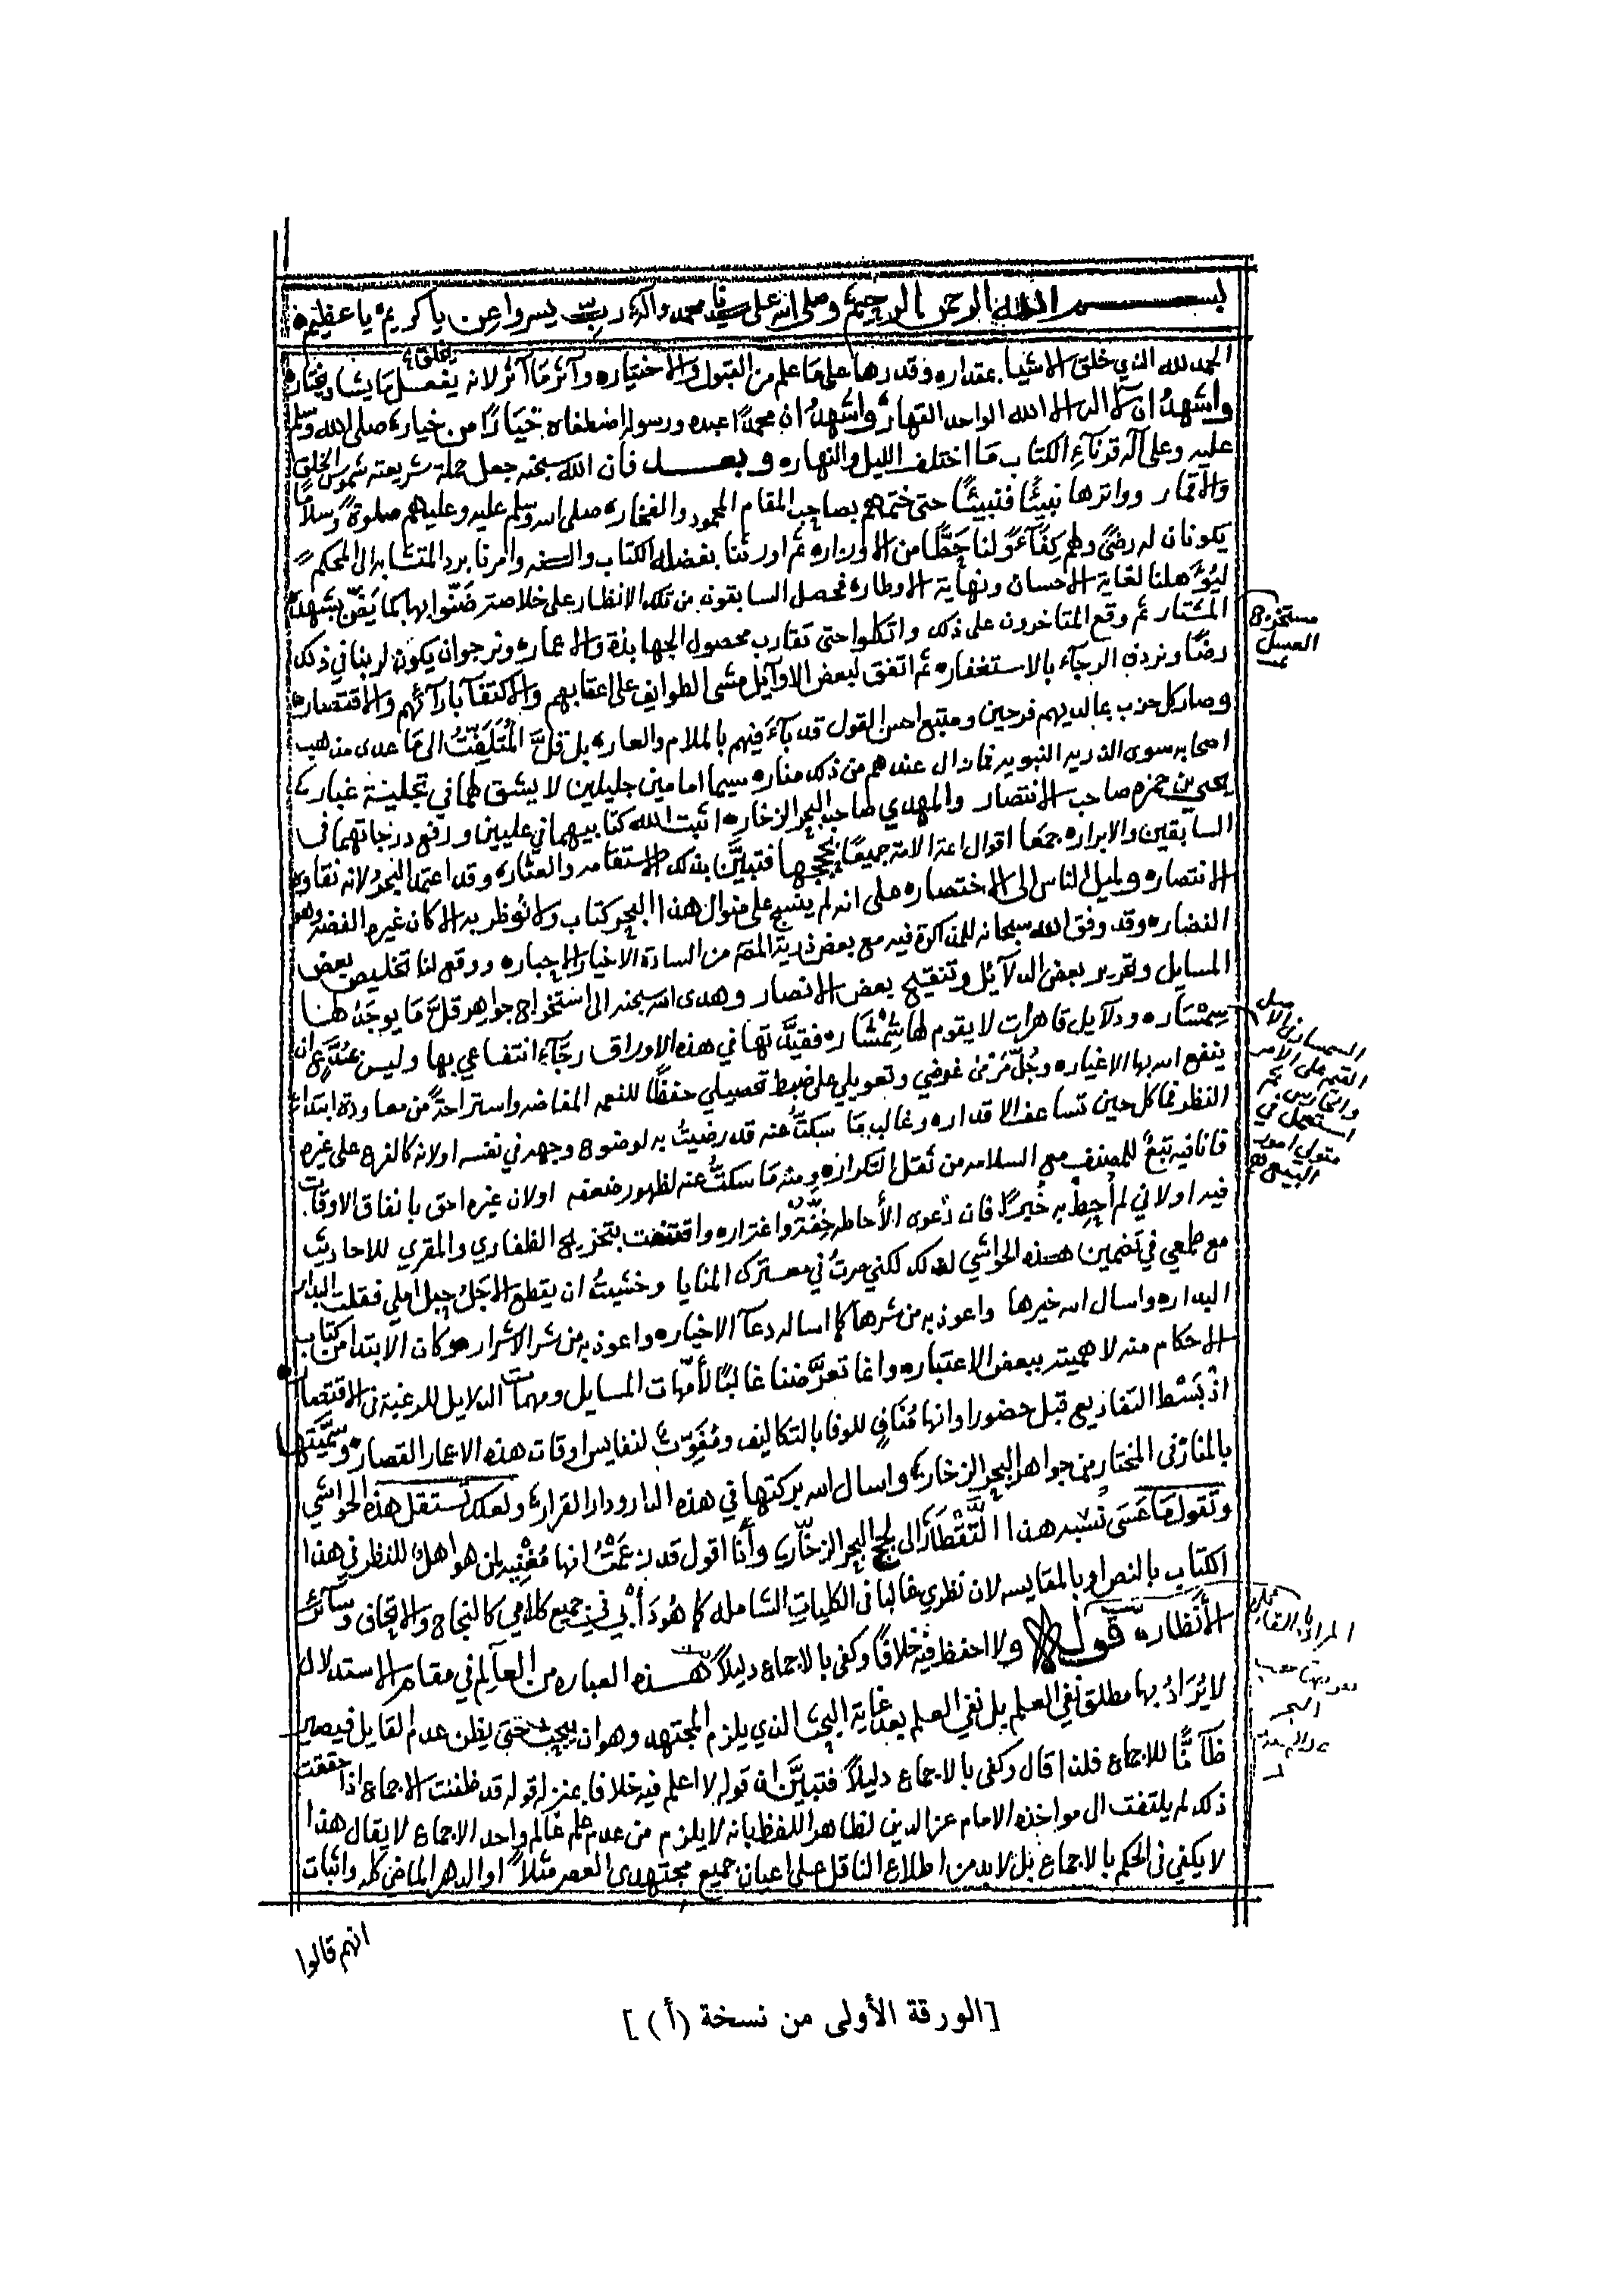 بسم الله الرحمن الرحيم وصلى الله على سيدنا محمد وآله رب يسر واعن يا كريم يا عظيم
الحمد لله الذي خلق الاشيا بمقداره وقدرها على ما علم من القبول والاختياره وآثر ما آثر لانه يفعل ما يشاء ويختار
يخلق
واشهد ان لا اله الا الله الواحد القهار واشهد ان محمدا عبده ورسوله اصطفاه خيارا من خياره صلى الله وسلم
عليه وعلى آله قرنآء الكتاب ما اختلف الليل والنهاره وبعد فان الله سبحنه جعل حملة شريعته شموس الخلق
والاقمار وواترها نبيئا فنبيئا حتى ختمهم بصاحب المقام المحمود والفخاره صلى الله وسلم عليه وعليهم صلوة وسلاما
يكونان له رضى ولهم كفآء ولنا حطا من الاوزاره ثم اورثنا بفضله الكتاب والسنه وامرنا برد المتشابه الى المحكم
ليؤهلنا لغاية الاحسان ونهاية الاوطاره فحصل السابقون من تلك الانظار على خلاصة ضنوا بها كما يضن بشهده
المشتار ثم وقع المتاخرون على ذلك واتكلوا حتى تقارب محصول الجهابذة والاعماره ونرجو ان يكون لربنا في ذلك
مستخرج
العسل
رضا ونردف الرجآء بالاستغفاره ثم اتفق لبعض الاوآيل مشى الطوايف على اعقابهم والاكتفآ بارآئهم والاقتصاره
وصار كل حزب بما لديهم فرحين ومتبع احسن القول قد بآء فيهم بالملام والعاره بل قل الملتفت الى ما عدى مذهب
اصحابه سوى الذريه النبويه فما زال عندهم من ذلك مناره سيما امامين جليلين لا يشق لهما في تجلية غباره
يحيى بن حمزه صاحب الانتصار والمهدي صاحب البحر الزخاره اثبت الله كتابيهما في عليين ورفع درجاتهما في
السابقين والابراره جمعا اقوال ائمة الامة جميعا بحججها فتبين بذلك الاستقامه والعثاره وقد اعتمد البحر لانه نقاوة
الانتصاره ولميل الناس الى الاختصاره على انه لم ينسج على منوال هذا البحر كتاب ولا نوظر به الا كان غيره الفضة وهو
النضاره وقد وفق الله سبحانه للمذاكرة فيه مع بعض ذرية المؤلف من السادة الاخيار الاحباره ووقع لنا تخليص بعض
المسايل وتقرير بعض الدلآئل وتنقيح بعض الانصار وهدى الله سبحنه الى استخراج جواهر قل ما يوجد لها
سمساره ودلآيل قاهرات لا يقوم لها فقيدتها في هذه الاوراق رجآء انتفاعي بها وليس ان
السمسار في الاصل
القيم على الامر
استعمل في
متولي امور
البيع
ينفع الله بها الاغياره وجل غرضي وتعويلي على ضبط تحصيلي حفظا للنعمه المفاضه واستراحة من معاودة ابتدآء
النظر فما كل حين تساعف الاقداره وغالب ما سكت عنه قد رضيت به لوضوح وجهه في نفسه او لانه كالفرع على غيره
فانا فيه تبع للمصنف مع السلامه من ثقل التكراره ومنه ما سكت عنه لظهور ضعفه او لان غيره احق بانفاق الاوقات
فيه او لاني لم أحط به خبرا فان دعوى الأحاطه خفة واغتراره واقتنعت بتخريج الظفاري والمقري للاحاديث
مع طمعي في تضمين هذه الحواشي لذلك لكني صرت في معترك المنايا وخشيت ان يقطع الاجل حبل املي فقلت البدار
البداره واسال الله خيرها واعوذ به من شرها كما اساله دعآ الاخياره واعوذ به من شر الاشراره وكان الابتدا من كتاب
الاحكام منه لاهميته ببعض الاعتباره وانما تعرضنا غالبا لأمهات المسايل ومهمات الدلايل للرغبة في الاقتصار
اذ بسط التفاريع قبل حضور اوانها مناف للوفا بالتكاليف ومفوت لنفايس اوقات هذه الاعمار القصار وسميتها
بالمنار في المختار من جواهر البحر الزخاره واسال الله بركتها في هذه الدار ودار القرار ولعلك تستقل هذه الحواشي
وتقول ما عسى نسبة هذا التقطار الى لجج البحر الزخاره وأنا اقول قد زعمت انها مغنيه لمن هو اهل للنظر في هذا
الكتاب بالنص او بالمقايسه لان نظري غالبا في الكليات الشامله كما هو دأبي في جميع كلامي كالنجاح والاتحاف وسآئر
الأنظاره قوله ولا احفظ فيه خلافا وكفى بالاجماع دليلا هذه العباره من العالم في مقام الاستدلال
لا يراد بها مطلق نفي العلم بل نفي العلم بعد غاية البحث الذي يلزم المجتهد وهو ان يبحث حتى يظن عدم القايل فيصير
البحر
ظآنا للاجماع فلذا قال وكفى بالاجماع دليلا فتبين ان قوله لا اعلم فيه خلافا بمنزلة قوله قد ظننت الاجماع اذا حققت
ذلك لم يلتفت الى مواخذه الامام عز الدين لظاهر اللفظ بانه لا يلزم من عدم علم عالم واحد الاجماع لا يقال هذا
لا يكفي في الحكم بالاجماع بل لا بد من اطلاع الناقل على اعيان جميع مجتهدى العصر مثلا او الدهر الماضي كله واثبات
انهم قالوا
[الورقة الأولى من نسخة (أ)]